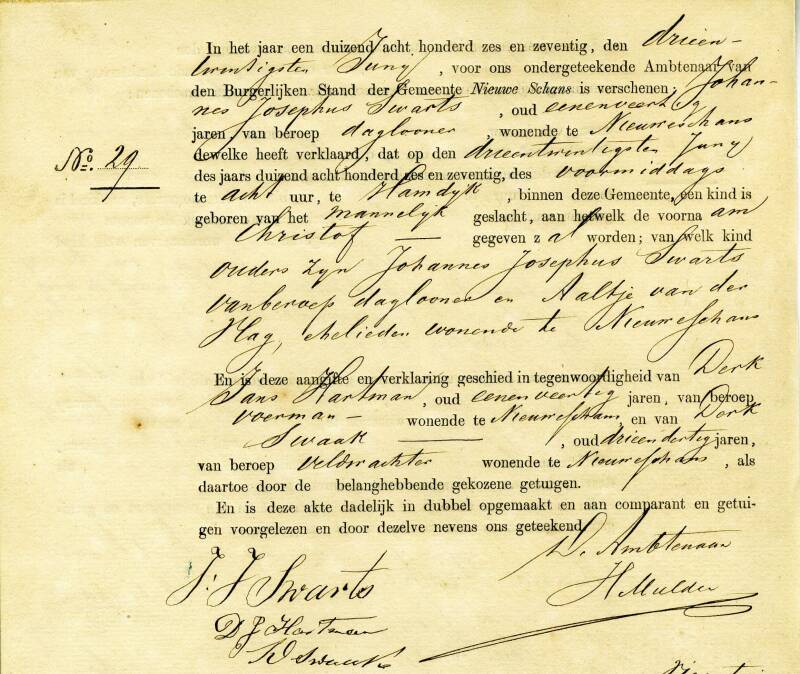 In het jaar een duizend acht honderd zes en zeventig, den drieen-
twintigsten Juny, voor ons ondergeteekende Ambtenaar van
den Burgerlijken Stand der Gemeente Nieuwe Schans is verschenen, Johan-
nes Josephus Swarts, oud eenenveertig
jaren, van beroep daglooner, wonende te Nieuweschans
dewelke heeft verklaard, dat op den drieentwintigsten Juny
No. 29
des jaars duizend acht honderd zes en zeventig, des voormiddags
te acht uur, te Hamdyk, binnen deze Gemeente, een kind is
geboren van het mannelyk geslacht, aan hetwelk de voorna am
Christof — gegeven z al worden; van welk kind
ouders zyn Johannes Josephus Swarts
van beroep daglooner en Aaltje van der
Hag, echelieden wonende te Nieuweschans
En is deze aangifte en verklaring geschied in tegenwoordigheid van Derk
Jans Hartman, oud eenenveertig jaren, van beroep
voerman — wonende te Nieuweschans, en van Derk
Swaak —, oud drieendertig jaren,
van beroep veldwachter wonende te Nieuweschans, als
daartoe door de belanghebbende gekozene getuigen.
En is deze akte dadelijk in dubbel opgemaakt en aan comparant en getui-
gen voorgelezen en door dezelve nevens ons geteekend
De Ambtenaar
J. J Swarts
H Mulder
D J Hartman
D Swaak